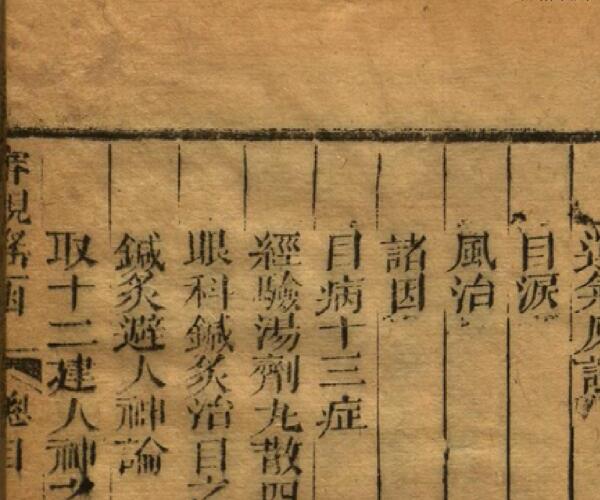 目淚
風治
諸因
目病十三症
經驗湯劑丸散四
眼科鍼灸治目之
鍼灸避人神論
取十二建人神之
審視瑤函 總目